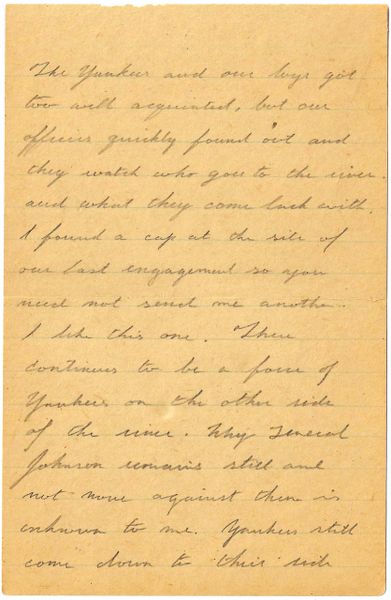 The Yankees and our boys got
too well acquainted, but our
officers quickly found out and
they watch who goes to the river.
and what they come back with.
I found a cap at the site of
our last engagement so you
need not send me another.
I like this one. There
continues to be a force of
Yankees on the other side
of the river. Why General
Johnson remains still and
not move against them is
unknown to me. Yankees still
come down to their side